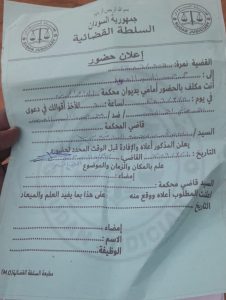 بسم الله الرحمن الرحيم
جمهورية السودان
السلطة القضائية
إعلان حضور
القضية نمرة:
إلى :
أنت مكلف بالحضور أمامي بديوان محكمة
في يوم : الساعة لأخذ أقوالك في دعوى
/ ضد /
قاضي المحكمة
السيد/
يعلن المذكور أعلاه والإفادة قبل الوقت المحدد لحضوره
التاريخ : القاضي
علم بالمكان والزمان والموضوع
إمضاء :
السيد قاضي محكمة :
أعلنت المطلوب أعلاه ووقع منه على هذا بما يفيد العلم والميعاد
التاريخ
إمضاء :
الاسم :
الوظيفة:
مطبعة السلطة القضائية